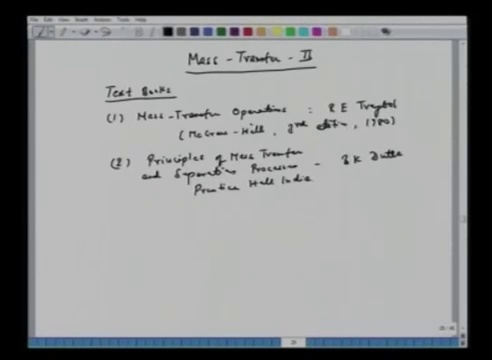 Mass - Transfer - II
Text Books
(1) Mass - Transfer Operations : R E Treybal
(McGraw-Hill, 3rd edition, 1980)
(2) Principles of Mass Transfer
and Separation Processes - B K Dutta
Prentice Hall India